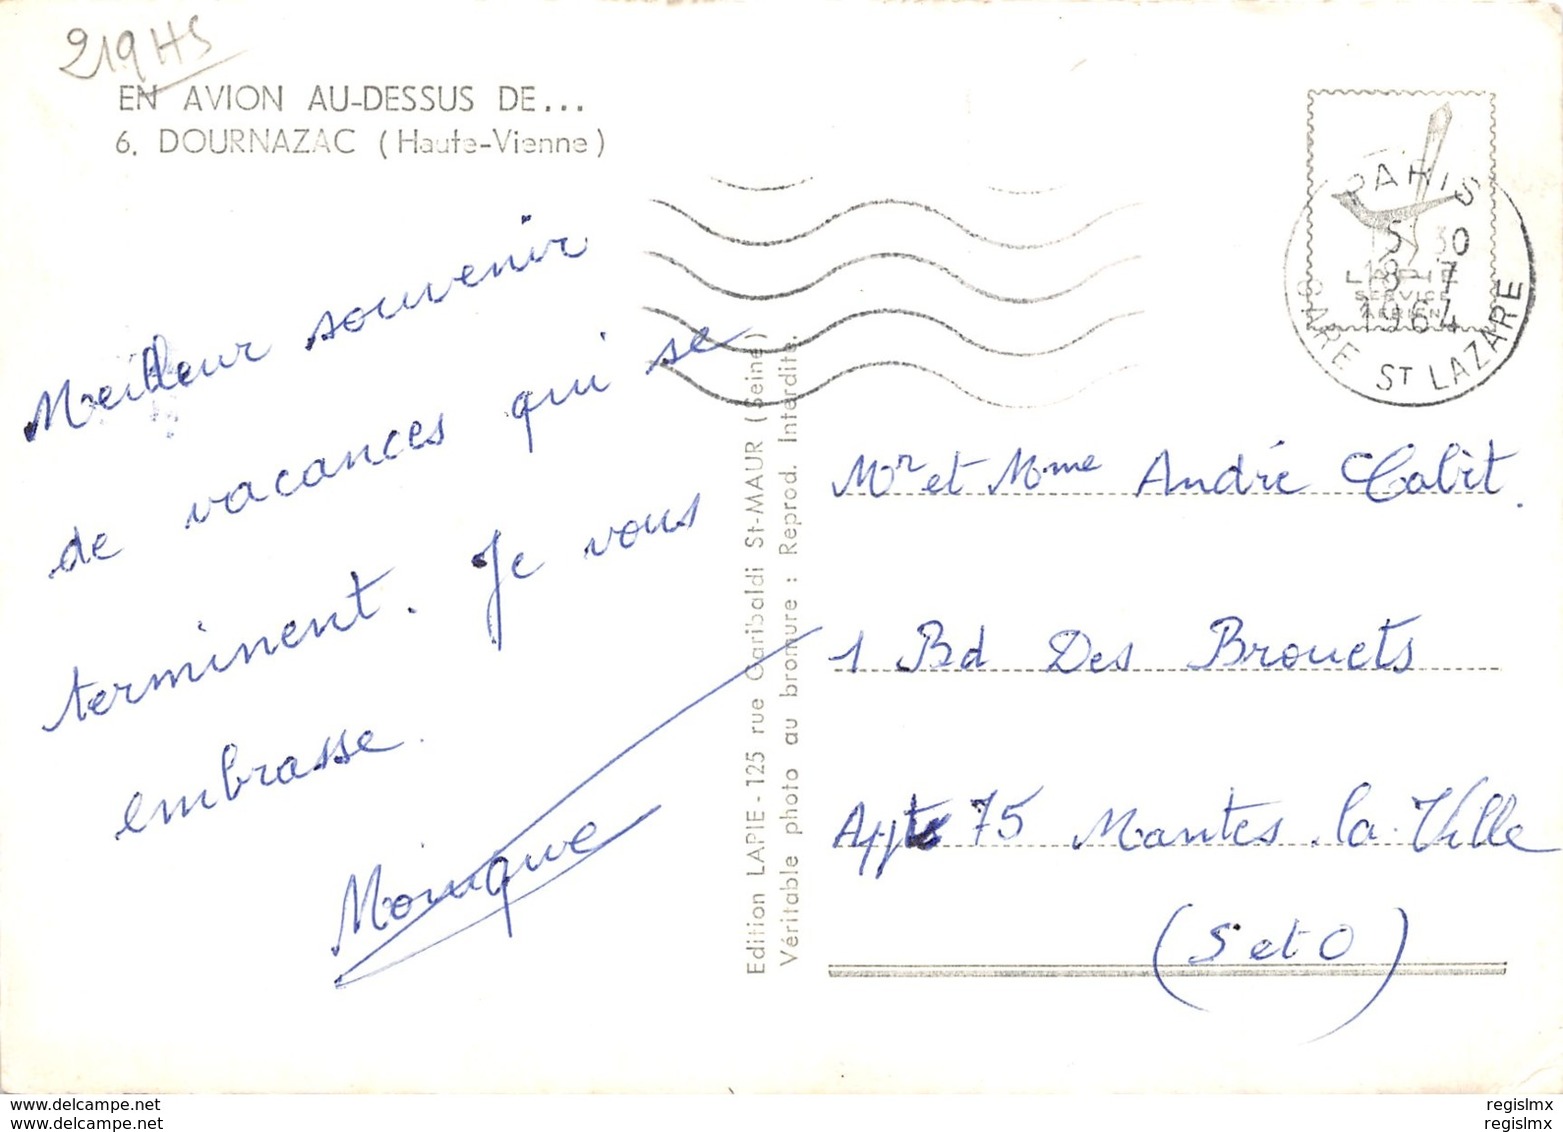 219HS
EN AVION AU-DESSUS DE...
6. DOURNAZAC (Haute-Vienne)
Meilleur souvenir
de vacances qui se
terminent. Je vous
embrasse.
Monique
Edition LAPIE - 125 rue Garibaldi St-MAUR (Seine)
Véritable photo au bromure : Reprod. Interdite.
LAPIE
SERVICE
AERIEN
PARIS
30
18-7
1964
GARE ST LAZARE
Mr et Mme André Cabit.
1 Bd Des Brouets
Appt 75 Mantes la Ville
(S et O)
www.delcampe.net
www.delcampe.net
regislmx
regislmx